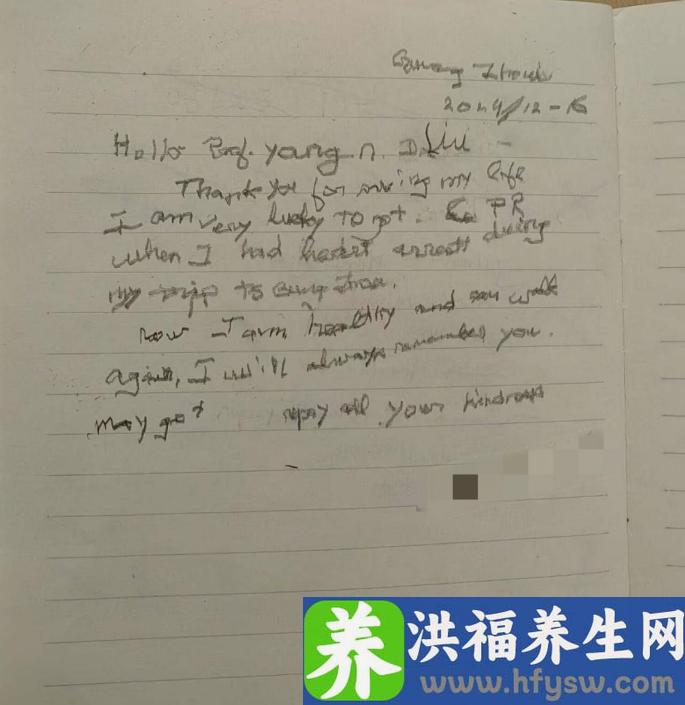 Guang Zhou
2024/12-16
Hello Prof. young n. D. Liu
Thank you for saving my life
I am very lucky to got CPR
when I had heart arrest during
my trip to Guang
now I am healthy and can walk
again, I will always remember you.
may got repay all your kindness
养 洪福养生网
www.hfysw.com